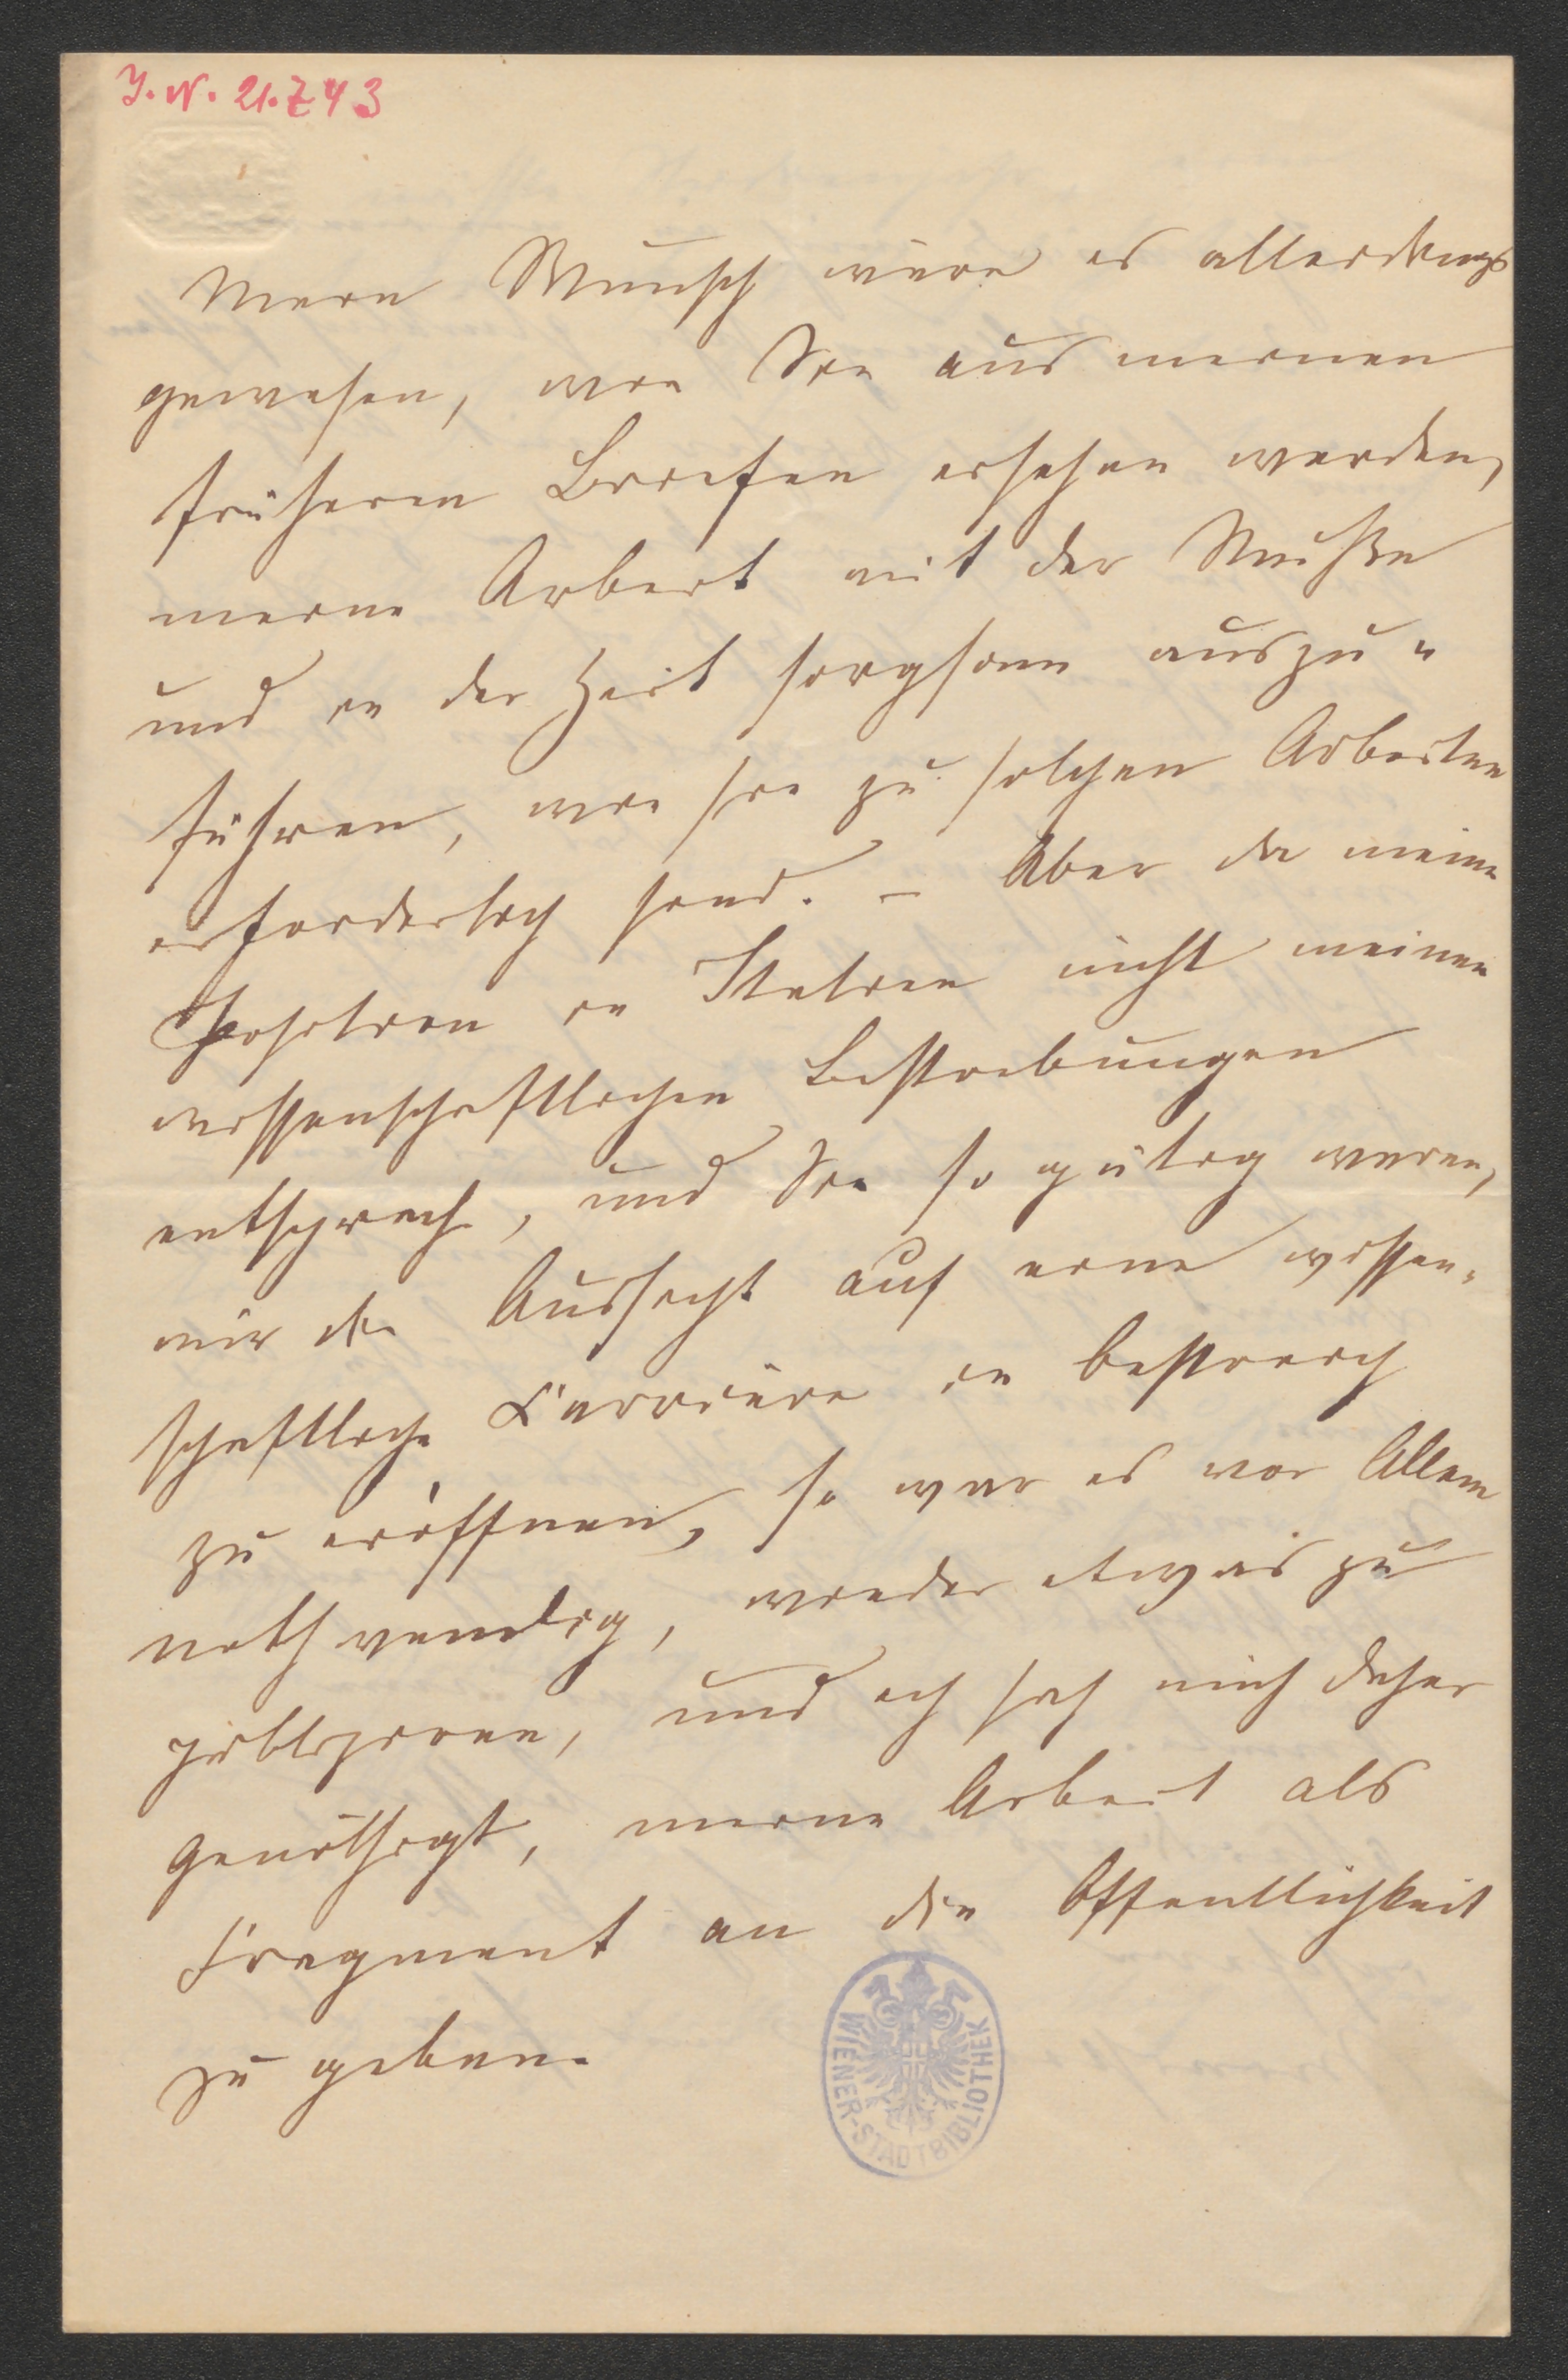 J. N. 21.743
Mein Wunsch wäre es allerdings
gewesen, wie Sie aus meinen
früheren Briefen ersehen werden,
meine Arbeit mit der Muße
und in der Zeit sorgsam auszu-
führen, wie sie zu solchen Arbeiten
erforderlich sind. – Aber da meine
Position in Italien nicht meinen
wissenschaftlichen Bestrebungen
entsprach, und Sie so gütig waren,
mir die Aussicht auf eine wissen-
schaftliche Carrière in Oestreich
zu eröffnen, so war es vor Allem
nothwendig, wieder etwas zu
publiziren, und ich sah mich daher
genöthigt, meine Arbeit als
Fragment an die Öffentlichkeit
zu geben.
WIENER-STADTBIBLIOTHEK